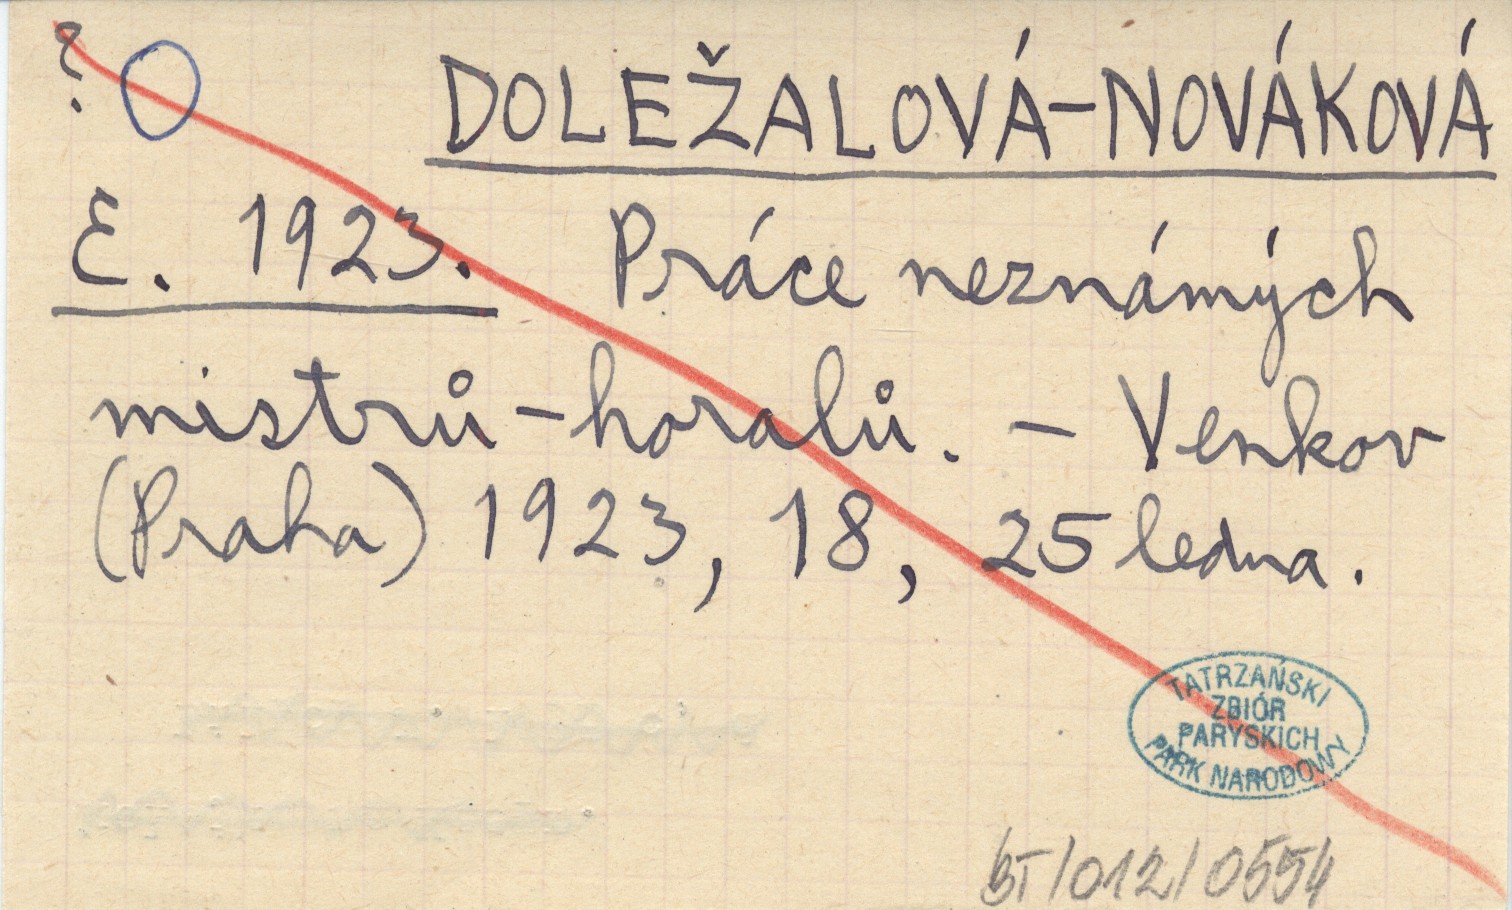 ? DOLEŽALOVÁ-NOVÁKOVÁ
E. 1923. Práce neznámých
mistrů-horalů. - Venkov
(Praha) 1923, 18, 25 ledna.
TATRZAŃSKI
ZBIÓR
PARYSKICH
PARK NARODOWY
BT/012/0554